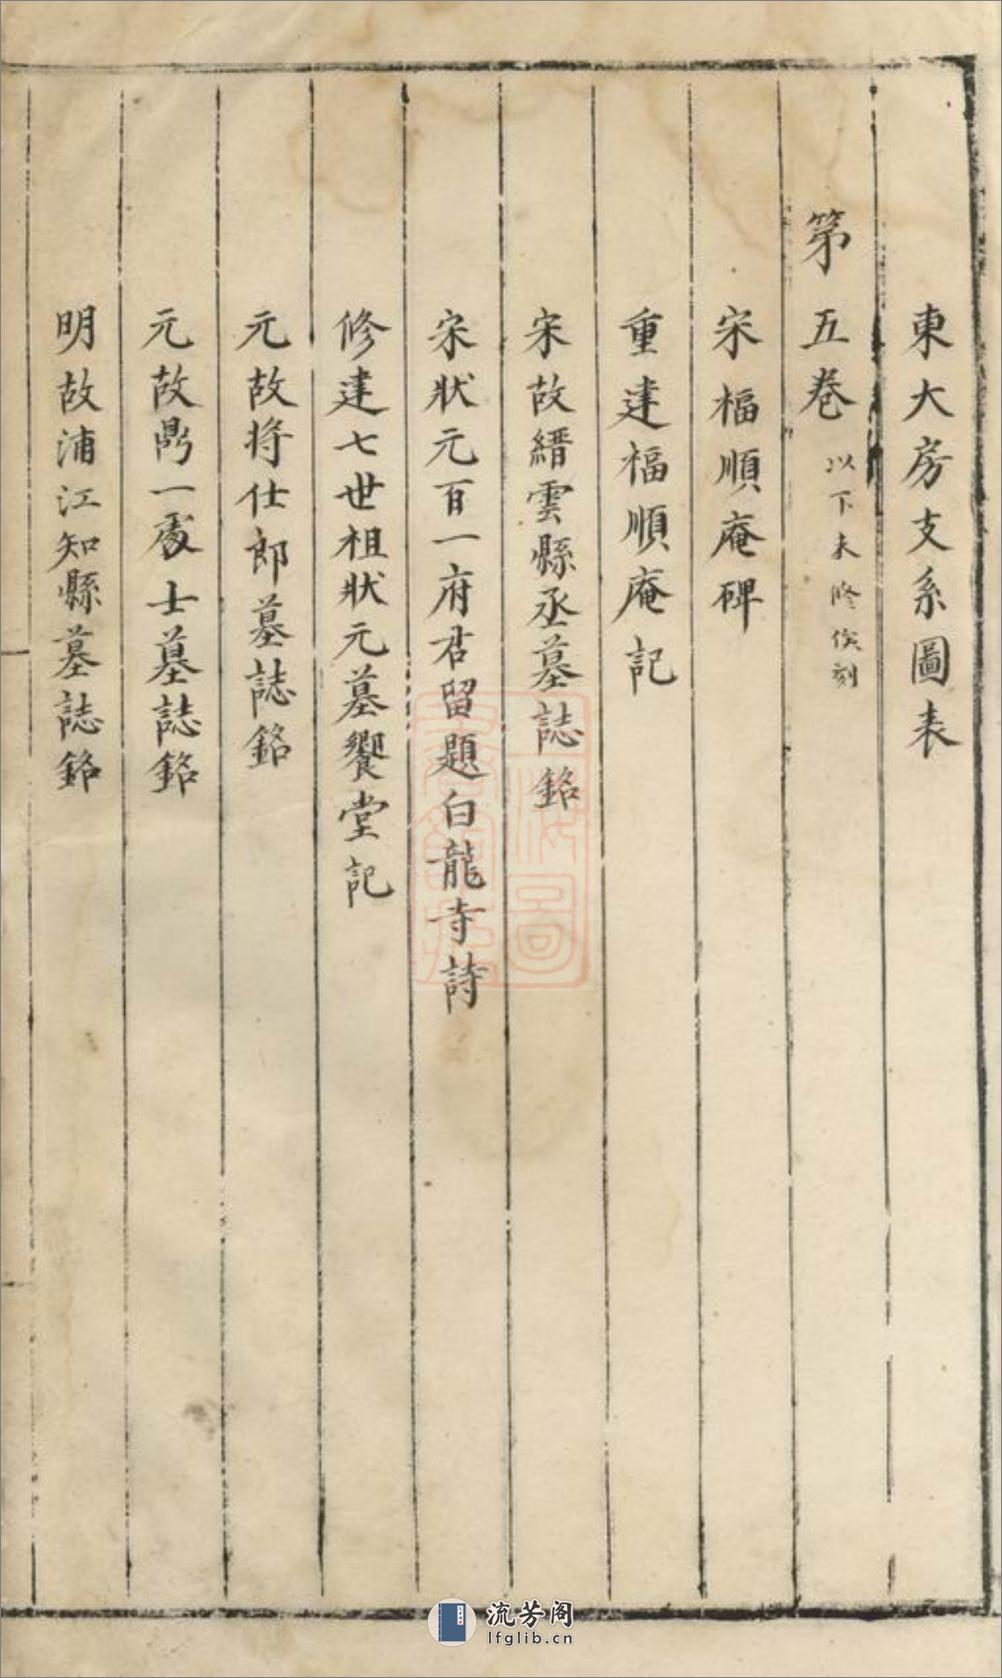 東大房支系圖表
第五卷 以下未修俟刻
宋福順庵碑
重建福順庵記
宋故縉雲縣丞墓誌銘
宋狀元百一府君留題白龍寺詩
修建七世祖狀元墓饗堂記
元故將仕郎墓誌銘
元故鼎一處士墓誌銘
明故浦江知縣墓誌銘
流芳阁
lfglib.cn